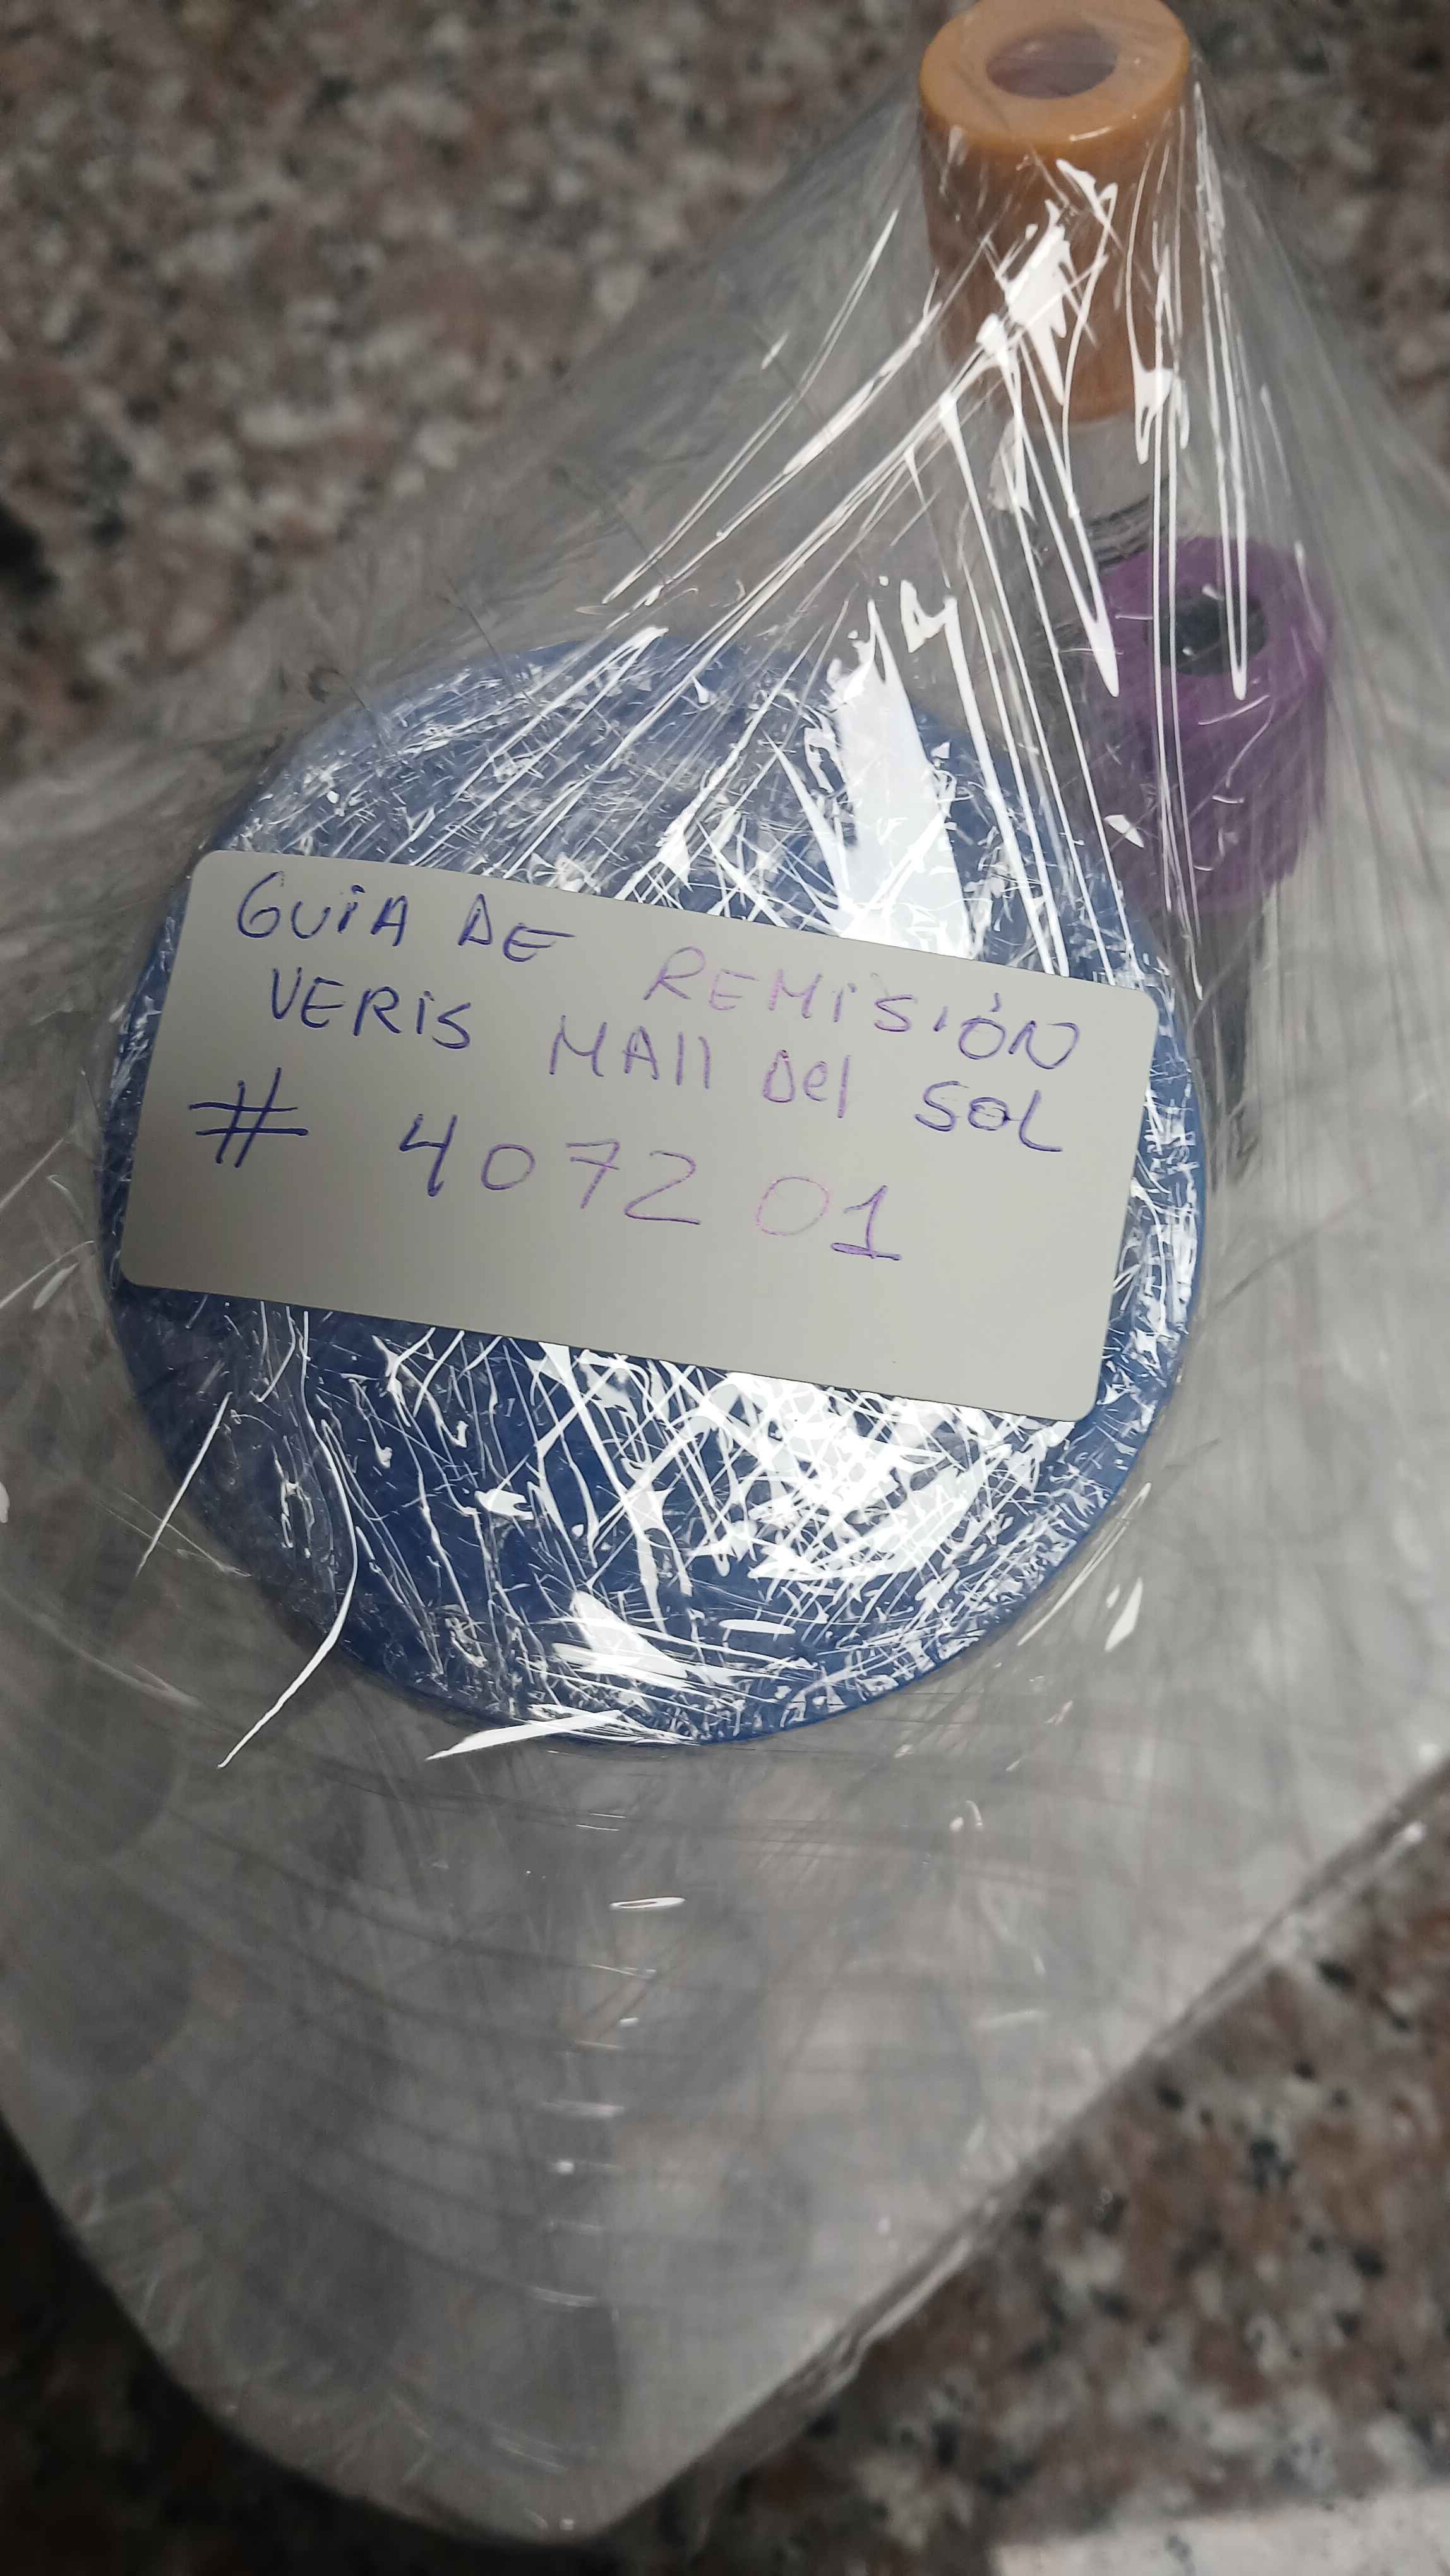 GUiA DE REMiSiÓN
VERiS MAll Del SOL
# 4072 01